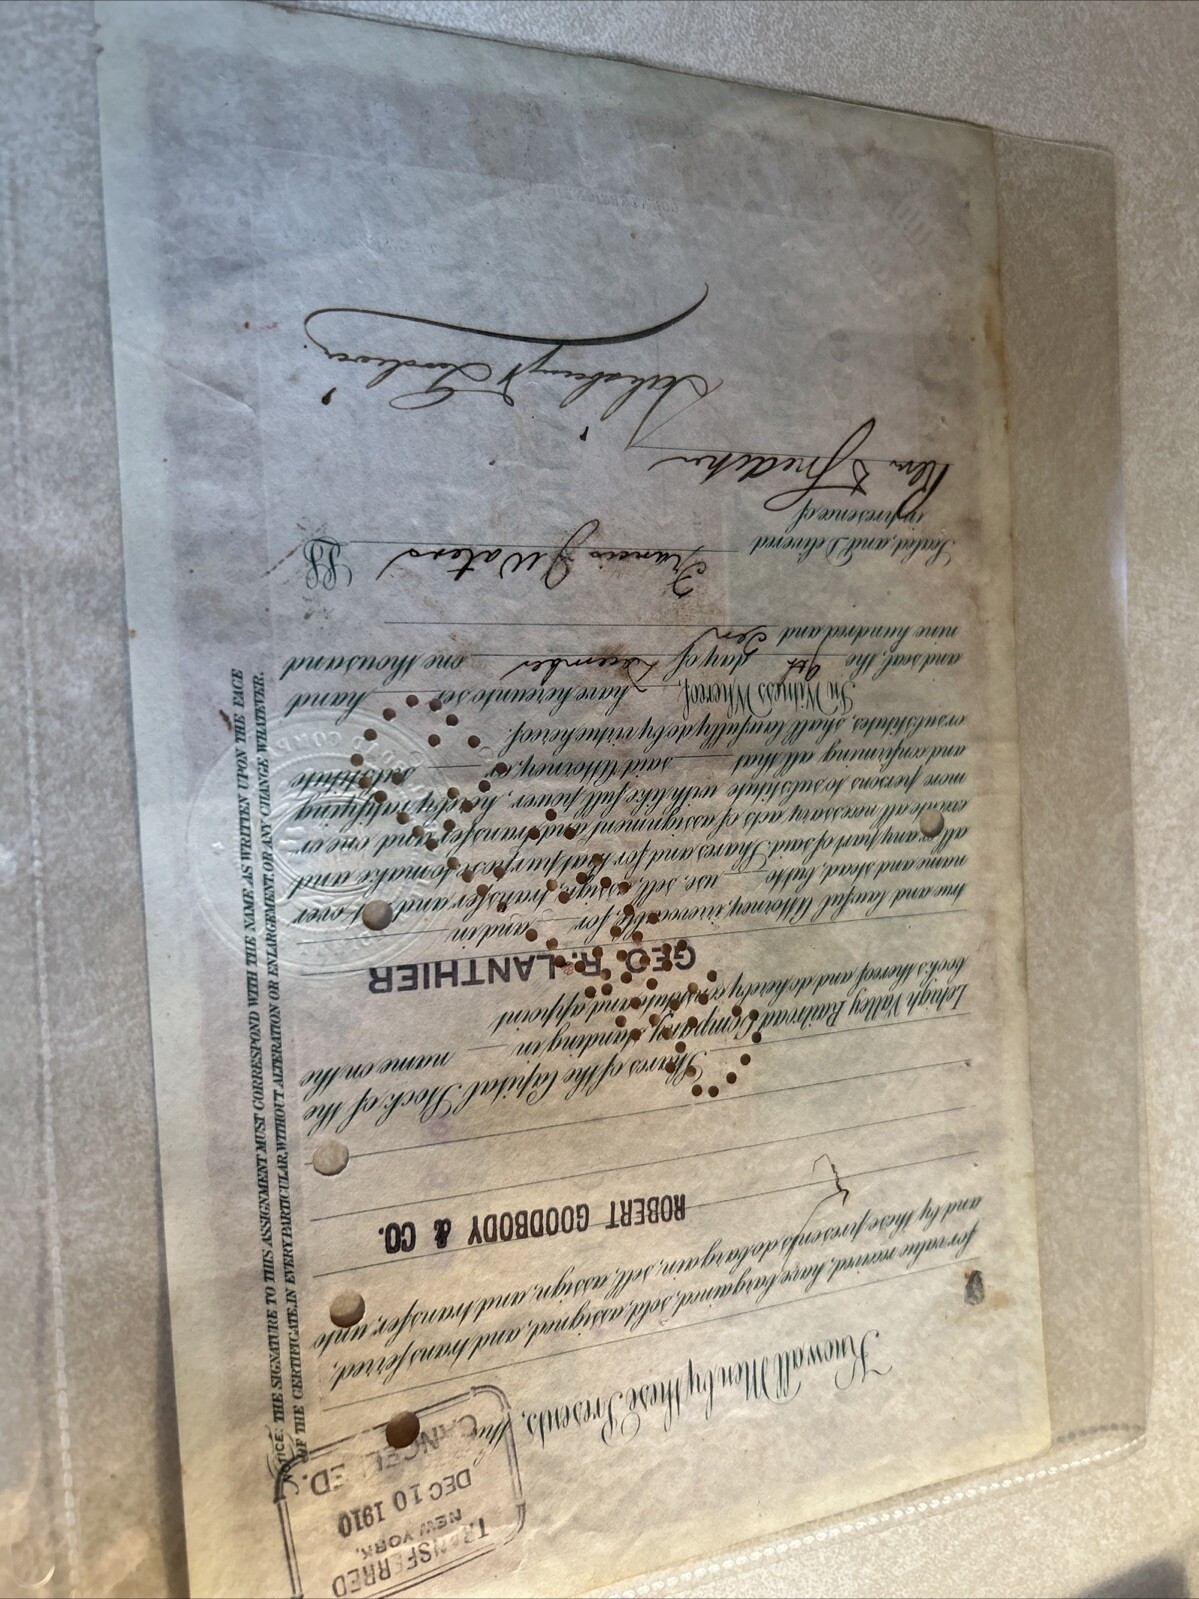 TRANSFERRED
NEW YORK,
DEC 10 1910
CANCELLED.
Know all Men by these Presents, that
for value received, have bargained, sold, assigned, and transferred,
and by these presents do bargain, sell, assign, and transfer, unto
ROBERT GOODBODY & CO.
Shares of the Capital Stock of the
Lehigh Valley Railroad Company, standing in name on the
books thereof, and do hereby constitute and appoint
GEO. R. LANTHIER
true and lawful Attorney, irrevocable, for and in
name and stead, but to use, sell, assign, transfer and set over
all or any part of said Shares and for that purpose to make and
execute all necessary acts of assignment and transfer and one or
more persons to substitute with like full power, hereby ratifying
and confirming all that said Attorney, or substitute
or substitutes, shall lawfully do by virtue hereof.
In Witness Whereof, have hereunto set hand
and seal, the 9th day of December one thousand
nine hundred and Ten
Sealed, and Delivered
in presence of
Francis J Waters LS
NOTICE. THE SIGNATURE TO THIS ASSIGNMENT MUST CORRESPOND WITH THE NAME AS WRITTEN UPON THE FACE
OF THE CERTIFICATE, IN EVERY PARTICULAR, WITHOUT ALTERATION OR ENLARGEMENT, OR ANY CHANGE WHATEVER.